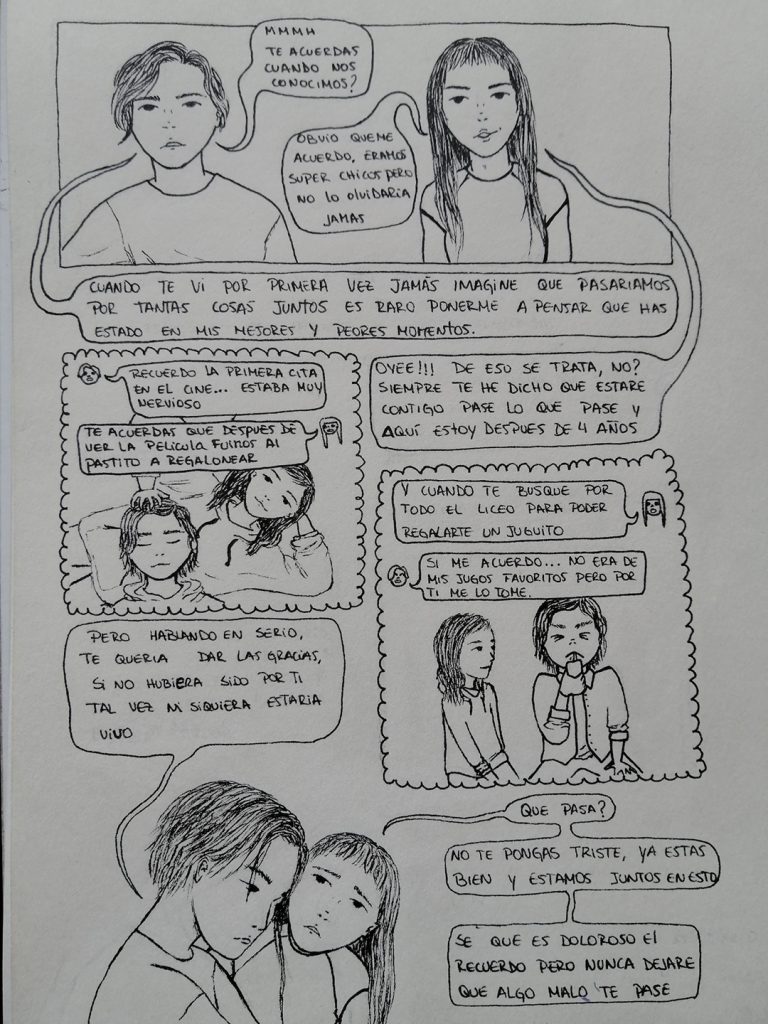 MMMH
TE ACUERDAS
CUANDO NOS
CONOCIMOS?
OBVIO QUE ME
ACUERDO, ERAMOS
SUPER CHICOS PERO
NO LO OLVIDARIA
JAMAS
CUANDO TE VI POR PRIMERA VEZ JAMÁS IMAGINE QUE PASARIAMOS
POR TANTAS COSAS JUNTOS ES RARO PONERME A PENSAR QUE HAS
ESTADO EN MIS MEJORES Y PEORES MOMENTOS.
OYEE!!! DE ESO SE TRATA, NO?
SIEMPRE TE HE DICHO QUE ESTARE
CONTIGO PASE LO QUE PASE Y
AQUÍ ESTOY DESPUES DE 4 AÑOS
RECUERDO LA PRIMERA CITA
EN EL CINE... ESTABA MUY
NERVIOSO
TE ACUERDAS QUE DESPUES DE
VER LA PELÍCULA FUIMOS AL
PASTITO A REGALONEAR
Y CUANDO TE BUSQUE POR
TODO EL LICEO PARA PODER
REGALARTE UN JUGUITO
SI ME ACUERDO... NO ERA DE
MIS JUGOS FAVORITOS PERO POR
TI ME LO TOME.
PERO HABLANDO EN SERIO,
TE QUERIA DAR LAS GRACIAS,
SI NO HUBIERA SIDO POR TI
TAL VEZ NI SIQUIERA ESTARIA
VIVO
QUE PASA?
NO TE PONGAS TRISTE, YA ESTAS
BIEN Y ESTAMOS JUNTOS EN ESTO
SE QUE ES DOLOROSO El
RECUERDO PERO NUNCA DEJARE
QUE ALGO MALO TE PASE